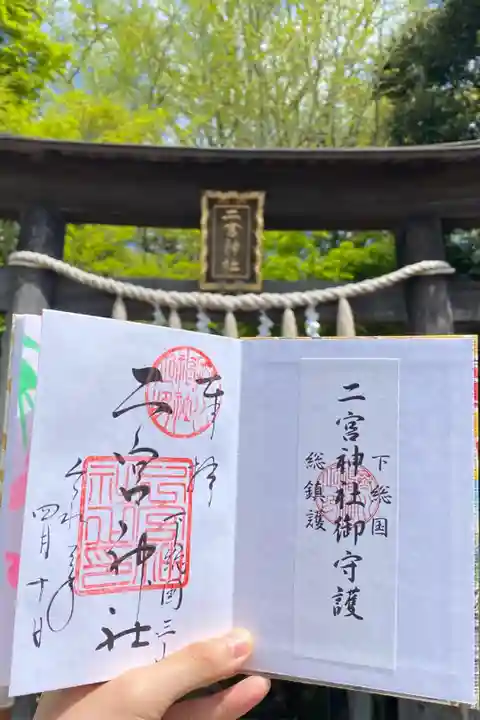 二宮神社
奉拝
二宮神社
下総国三山
令和二年
四月十日
下総国
二宮神社御守護
総鎮護